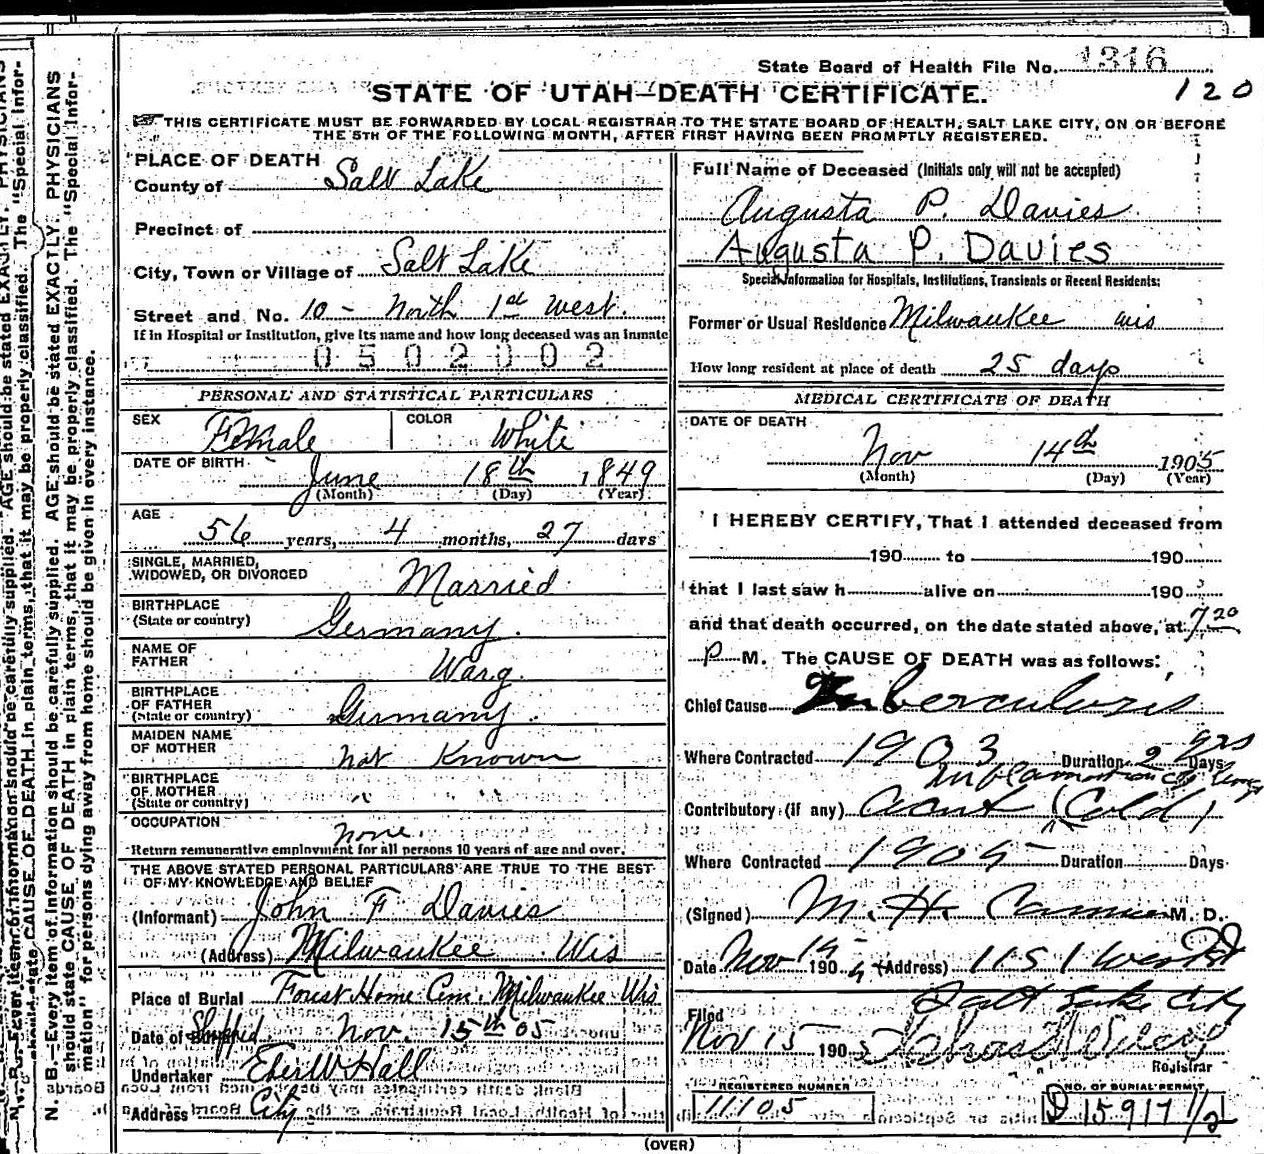 State Board of Health File No. 1316
120
STATE OF UTAH—DEATH CERTIFICATE.
THIS CERTIFICATE MUST BE FORWARDED BY LOCAL REGISTRAR TO THE STATE BOARD OF HEALTH, SALT LAKE CITY, ON OR BEFORE
THE 5TH OF THE FOLLOWING MONTH, AFTER FIRST HAVING BEEN PROMPTLY REGISTERED.
N. B.—Every item of information should be carefully supplied. AGE should be stated EXACTLY. PHYSICIANS
should state CAUSE OF DEATH in plain terms, that it may be properly classified. The "Special Infor-
mation" for persons dying away from home should be given in every instance.
PLACE OF DEATH
County of Salt Lake
Precinct of
City, Town or Village of Salt Lake
Street and No. 10 - North 1st West.
If in Hospital or Institution, give its name and how long deceased was an inmate
0502002
PERSONAL AND STATISTICAL PARTICULARS
SEX Female COLOR White
DATE OF BIRTH June 18th 1849
(Month) (Day) (Year)
AGE
56 years, 4 months, 27 days
SINGLE, MARRIED,
WIDOWED, OR DIVORCED Married
BIRTHPLACE
(State or country) Germany.
NAME OF
FATHER Warg.
BIRTHPLACE
OF FATHER
(State or country) Germany.
MAIDEN NAME
OF MOTHER Not Known
BIRTHPLACE
OF MOTHER
(State or country) " "
OCCUPATION None.
Return remunerative employment for all persons 10 years of age and over.
THE ABOVE STATED PERSONAL PARTICULARS ARE TRUE TO THE BEST
OF MY KNOWLEDGE AND BELIEF
(Informant) John F Davies
(Address) Milwaukee Wis
Place of Burial Forest Home Cem. Milwaukee Wis
Date of Burial Shipped Nov. 15th 05
Undertaker Eber W Hall
Address City
Full Name of Deceased (Initials only will not be accepted)
Augusta P. Davies
Augusta P. Davies
Special Information for Hospitals, Institutions, Transients or Recent Residents:
Former or Usual Residence Milwaukee Wis
How long resident at place of death 25 days
MEDICAL CERTIFICATE OF DEATH
DATE OF DEATH
Nov 14th 1905
(Month) (Day) (Year)
I HEREBY CERTIFY, That I attended deceased from
190 to 190
that I last saw h alive on 190
and that death occurred, on the date stated above, at 7.20
P M. The CAUSE OF DEATH was as follows:
Chief Cause Tuberculosis
Where Contracted 1903 Duration 2 yrs Days
Inflamation of lungs
Contributory (if any) acant (Cold)
Where Contracted 1905 Duration Days
(Signed) M. H. M. D.
Date Nov 15 1905 (Address) 115 1 West St
Salt Lake City
Filed
Nov 15 1905
Registrar
REGISTERED NUMBER
11105
NO. OF BURIAL PERMIT
D 15917 1/2
(OVER)